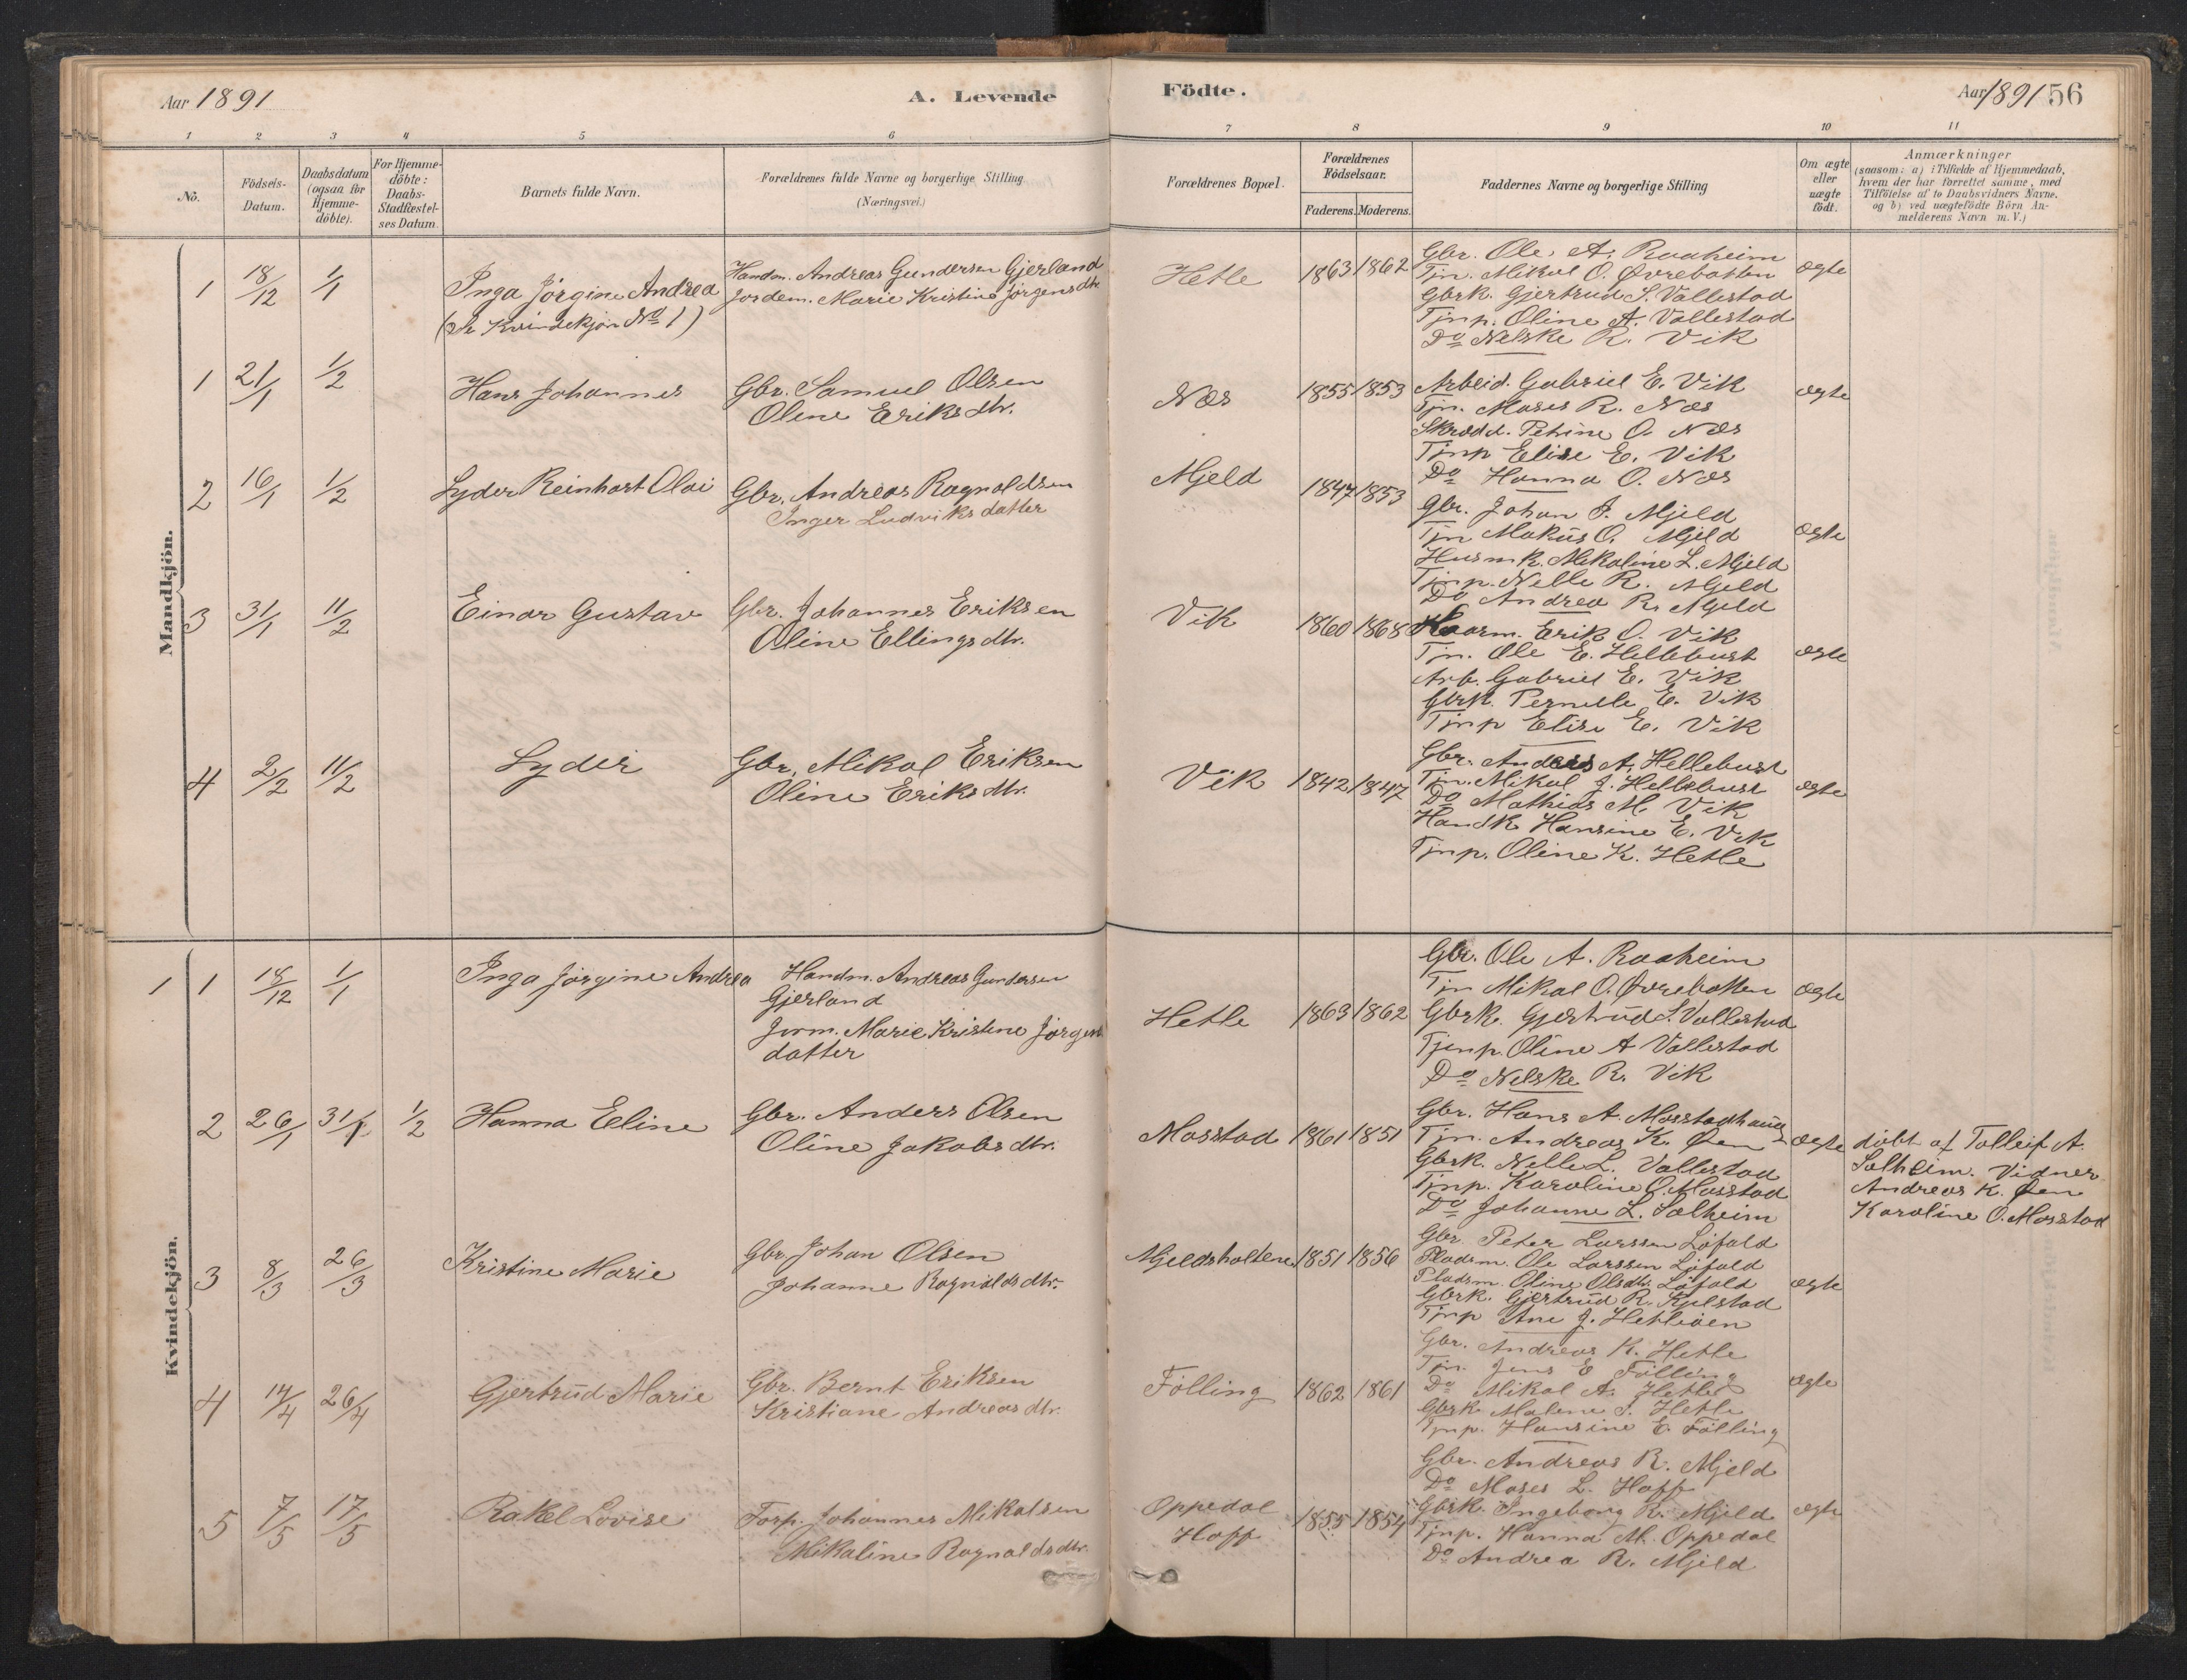 Aar 1891
A. Levende
Födte.
Aar 1891
56
1 2 3 4 5 6 7 8 9 10 11
No.
Födsels-
Datum.
Daabsdatum
(ogsaa for
Hjemme-
döbte).
For Hjemme-
döbte:
Daabs-
Stadfæstel-
ses Datum.
Barnets fulde Navn.
Forældrenes fulde Navne og borgerlige Stilling
(Næringsvei.)
Forældrenes Bopæl.
Forældrenes
Födselsaar.
Faderens. Moderens.
Faddernes Navne og borgerlige Stilling
Om ægte
eller
uægte
födt.
Anmærkninger
(saasom: a) i Tilfælde af Hjemmedaab,
hvem der har forrettet samme, med
Tilföielse af to Daabsvidners Navne.
og b) ved uægtefödte Börn An-
melderens Navn m. V.)
Mandkjön.
1 18/12 1/1
Inga Jörgine Andrea
(Se Kvindekjön No 1)
Handm. Andreas Gundersen Gjerland
Jordem. Marie Kristine Jörgensdtr
Hetle 1863 1862
Gbr. Ole A. Raaheim
Tjn. Mikal O. Øvrebotten
Gbrk. Gjertrud S. Vallestad
Tjnp. Oline A. Vallestad
Do Nelske R. Vik
ægte
1 21/1 1/2
Hans Johannes
Gbr. Samuel Olsen
Oline Eriksdtr.
Næs 1855 1853
Arbeid. Gabriel E. Vik
Tjn. Moses R. Næs
Skrædd. Petrine O. Næs
Tjnp Elise E. Vik
Do Hanna O. Næs
ægte
2 16/1 1/2
Lyder Reinhart Olai
Gbr. Andreas Ragnaldsen
Inger Ludviksdatter
Mjeld 1847 1853
Gbr. Johan J. Mjeld
Tjn Makus O. Mjeld
Husmk. Mikaline L. Mjeld
Tjnp. Nelle R. Mjeld
Do Andrea R. Mjeld
ægte
3 31/1 11/2
Einar Gustav
Gbr. Johannes Eriksen
Oline Ellingsdtr.
Vik 1860 1868
Kaarm. Erik O. Vik
Tjn. Ole E. Hellebust
Arb. Gabriel E. Vik
Gbrk. Pernille E. Vik
Tjnp Elise E. Vik
ægte
4 2/2 11/2
Lyder
Gbr. Mikal Eriksen
Oline Eriksdtr.
Vik 1842 1847
Gbr. Anders A. Hellebust
Tjn. Mikal J. Hellebust
Do Mathias M. Vik
Handk Hansine E. Vik
Tjnp. Oline K. Hetle
ægte
Kvindekjön.
1 1 18/12 1/1
Inga Jörgine Andrea
Handm. Andreas Gundersen
Gjerland
Jorm. Marie Kristine Jörgens
datter
Hetle 1863 1862
Gbr. Ole A. Raaheim
Tjn Mikal O. Øvrebotten
Gbrk. Gjertrud S. Vallestad
Tjenp. Oline A Vallestad
Do Nelske R. Vik
ægte
2 26/1 31/1 1/2
Hanna Eline
Gbr. Anders Olsen
Oline Jakobsdtr.
Masstad 1861 1851
Gbr. Hans A. Masstadhaug
Tjn. Andreas K. Øen
Gbrk. Nelle L. Vallestad
Tjnp. Karoline O. Masstad
Do Johanne L. Solheim
ægte
döbt af Tolleif A.
Solheim. Vidner
Andreas K. Øen
Karoline O. Masstad
3 8/3 26/3
Kristine Marie
Gbr. Johan Olsen
Johanne Ragnaldsdtr.
Mjeldsholtene 1851 1856
Gbr Peter Larssen Löfald
Pladsm. Ole Larssen Löfald
Pladsm. Oline Olsdtr. Löfald
Gbrk. Gjertrud R. Kjelstad
Tjnp Ane J. Hetleöen
ægte
4 14/4 26/4
Gjertrud Marie
Gbr. Bernt Eriksen
Kristiane Andreasdtr.
Fölling 1862 1861
Gbr. Andreas K. Hetle
Tjn. Jens E Fölling
Do Mikal A. Hetle
Gbrk Malene J. Hetle
Tjnp. Hansine E. Fölling
ægte
5 7/5 17/5
Rakel Lovise
Forp. Johannes Mikalsen
Mikaline Ragnaldsdtr.
Oppedal
Hoff
1855 1854
Gbr. Andreas R. Mjeld
Do Moses L. Hoff
Gbrk. Ingeborg R. Mjeld
Tjnp. Hanna M. Oppedal
Do Andrea R. Mjeld
ægte